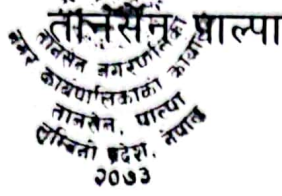 तानसेन पाल्पा
तानसेन नगरपालिका
नगर कार्यपालिकाको कार्यालय
तानसेन, पाल्पा
लुम्बिनी प्रदेश, नेपाल
२०७३